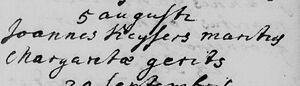 5 augusti
Joannes Keysers maritus
Margaritæ gerits
20 septembris